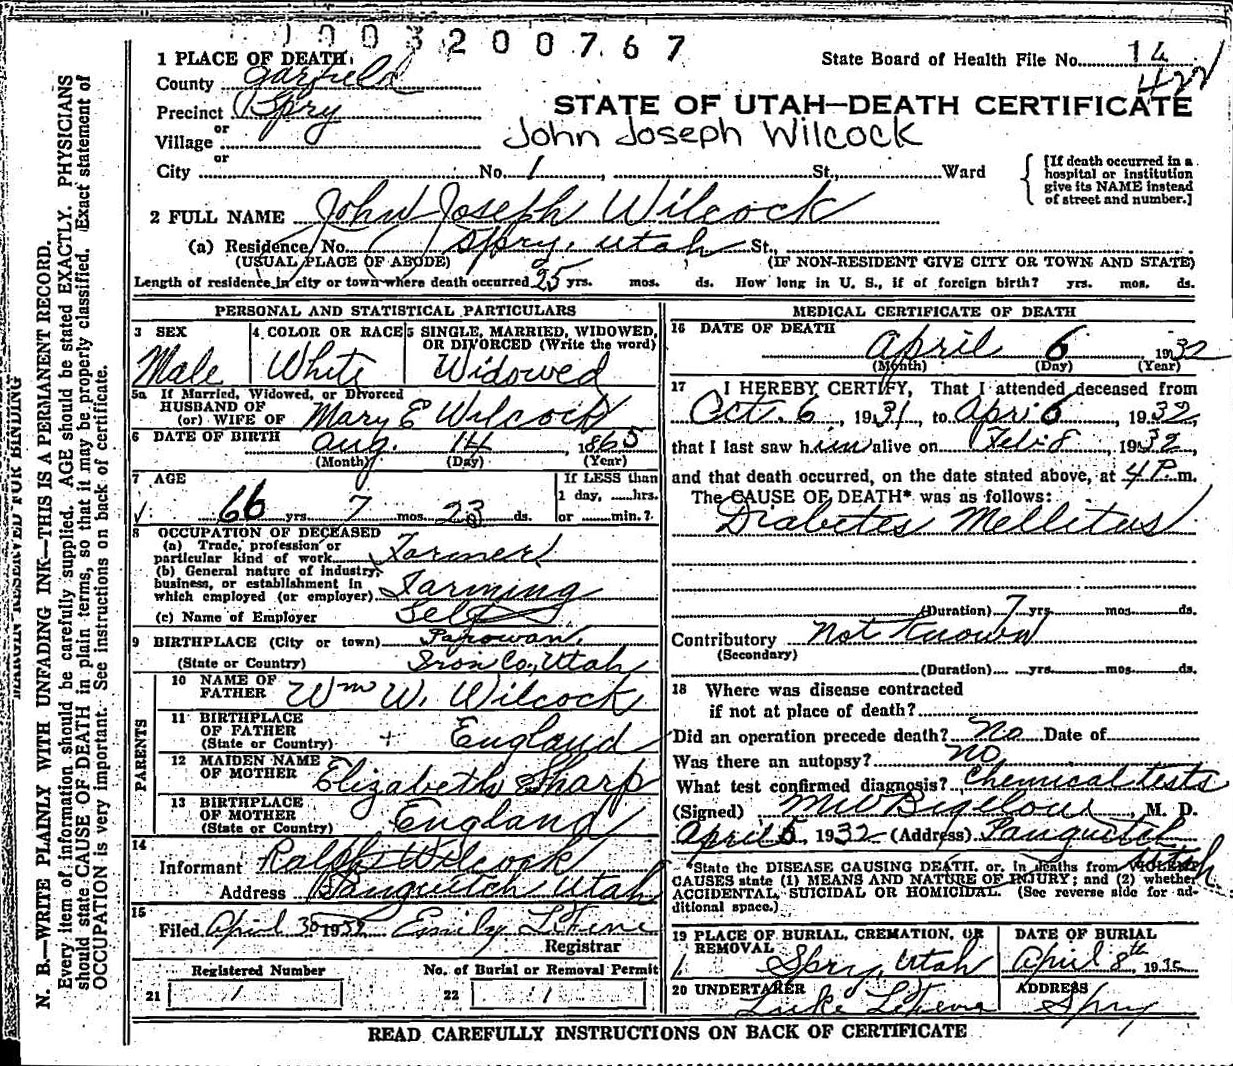 1003200767
1 PLACE OF DEATH
State Board of Health File No. 14
422
County Garfield
Precinct Spry
STATE OF UTAH—DEATH CERTIFICATE
or
Village
John Joseph Wilcock
or
City No. 1, St., Ward
[If death occurred in a hospital or institution give its NAME instead of street and number.]
2 FULL NAME John Joseph Wilcock
(a) Residence, No. Spry, Utah St.,
(USUAL PLACE OF ABODE) (IF NON-RESIDENT GIVE CITY OR TOWN AND STATE)
Length of residence in city or town where death occurred 25 yrs. mos. ds. How long in U. S., if of foreign birth? yrs. mos. ds.
PERSONAL AND STATISTICAL PARTICULARS
3 SEX
Male
4 COLOR OR RACE
White
5 SINGLE, MARRIED, WIDOWED,
OR DIVORCED (Write the word)
Widowed
5a If Married, Widowed, or Divorced
HUSBAND OF
(or) WIFE OF Mary E Wilcock
6 DATE OF BIRTH Aug. 14, 1865
(Month) (Day) (Year)
7 AGE
66 yrs. 7 mos. 23 ds.
If LESS than
1 day, hrs.
or min.?
8 OCCUPATION OF DECEASED
(a) Trade, profession or
particular kind of work Farmer
(b) General nature of industry,
business, or establishment in
which employed (or employer) Farming
(c) Name of Employer Self
9 BIRTHPLACE (City or town) Parowan,
(State or Country) Iron Co., Utah
PARENTS
10 NAME OF
FATHER Wm W. Wilcock
11 BIRTHPLACE
OF FATHER
(State or Country) England
12 MAIDEN NAME
OF MOTHER Elizabeth Sharp
13 BIRTHPLACE
OF MOTHER
(State or Country) England
14
Informant Ralph Wilcock
Address Panguitch Utah
15
Filed April 30 1932 Emily
Registrar
Registered Number
21 1
No. of Burial or Removal Permit
22 1
MEDICAL CERTIFICATE OF DEATH
16 DATE OF DEATH
April 6 1932
(Month) (Day) (Year)
17 I HEREBY CERTIFY, That I attended deceased from
Oct. 6, 1931, to April 6, 1932,
that I last saw him alive on Feb. 8, 1932,
and that death occurred, on the date stated above, at 4 P.m.
The CAUSE OF DEATH* was as follows:
Diabetes Mellitus
(Duration) 7 yrs. mos. ds.
Contributory Not Known
(Secondary)
(Duration) yrs. mos. ds.
18 Where was disease contracted
if not at place of death?
Did an operation precede death? No Date of
Was there an autopsy? No
What test confirmed diagnosis? Chemical tests
(Signed) M W Bigelow, M. D.
April 6 1932 (Address) Panguitch
Utah
*State the DISEASE CAUSING DEATH, or, in deaths from VIOLENT
CAUSES state (1) MEANS AND NATURE OF INJURY; and (2) whether
ACCIDENTAL, SUICIDAL OR HOMICIDAL. (See reverse side for ad-
ditional space.)
19 PLACE OF BURIAL, CREMATION, OR
REMOVAL
Spry, Utah
DATE OF BURIAL
April 8th, 19
20 UNDERTAKER
Luke
ADDRESS
Spry
READ CAREFULLY INSTRUCTIONS ON BACK OF CERTIFICATE
MARGIN RESERVED FOR BINDING
N. B.—WRITE PLAINLY WITH UNFADING INK—THIS IS A PERMANENT RECORD.
Every item of information should be carefully supplied. AGE should be stated EXACTLY. PHYSICIANS
should state CAUSE OF DEATH in plain terms, so that it may be properly classified. Exact statement of
OCCUPATION is very important. See instructions on back of certificate.